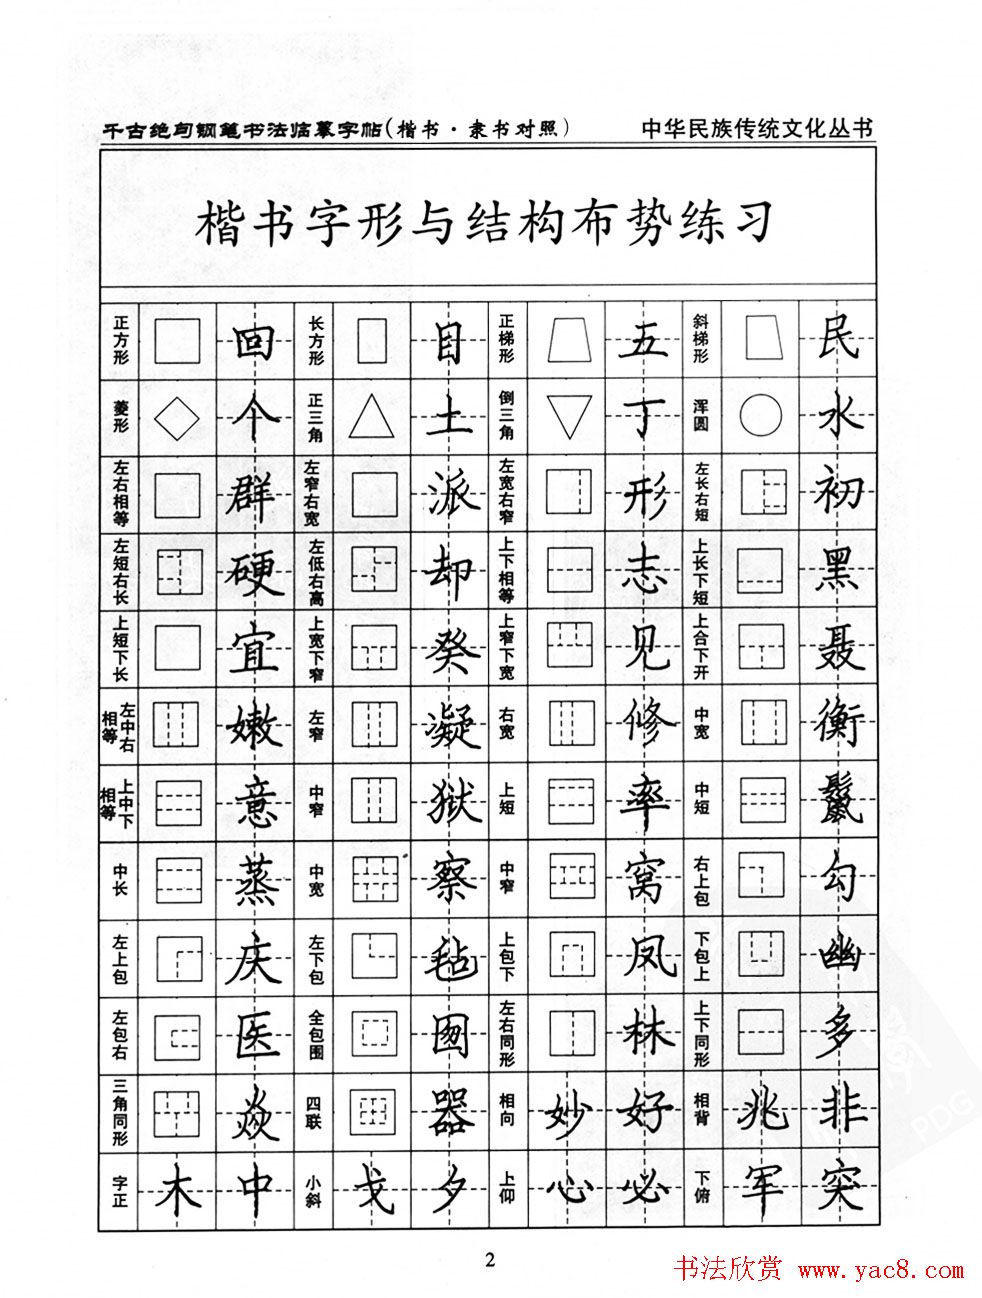 千古绝句钢笔书法临摹字帖(楷书·隶书对照) 中华民族传统文化丛书
楷书字形与结构布势练习
正方形 回 长方形 目 正梯形 五 斜梯形 民
菱形 个 正三角 土 倒三角 丁 浑圆 水
左右相等 群 左窄右宽 派 左宽右窄 形 左长右短 初
左短右长 硬 左低右高 却 上下相等 志 上长下短 黑
上短下长 宜 上宽下窄 癸 上窄下宽 见 上合下开 聂
左中右相等 嫩 左窄 凝 右宽 修 中宽 衡
上中下相等 意 中窄 狱 上短 率 中短
中长 蒸 中宽 察 中窄 窝 右上包 勾
左上包 庆 左下包 毡 上包下 凤 下包上 幽
左包右 医 全包围 囫 左右同形 林 上下同形 多
三角同形 焱 四联 器 相向 妙 好 相背 兆 非
字正 木 中 小斜 戈 夕 上仰 心 必 下俯 军 突
2
书法欣赏 www.yac8.com
PDG